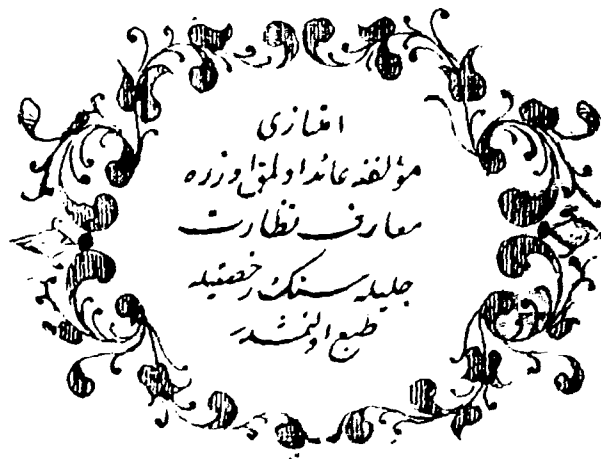 امتیازی
مؤلفنه عائد اولمق اوزره
معارف نظارت
جلیله سنك رخصتیله
طبع اولنمشدر